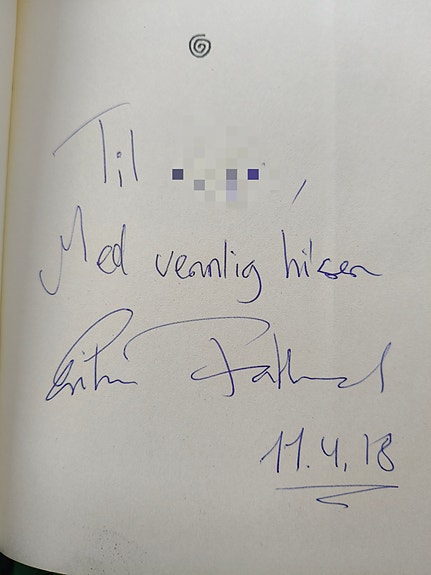 Til
Med vennlig hilsen
11.4.18